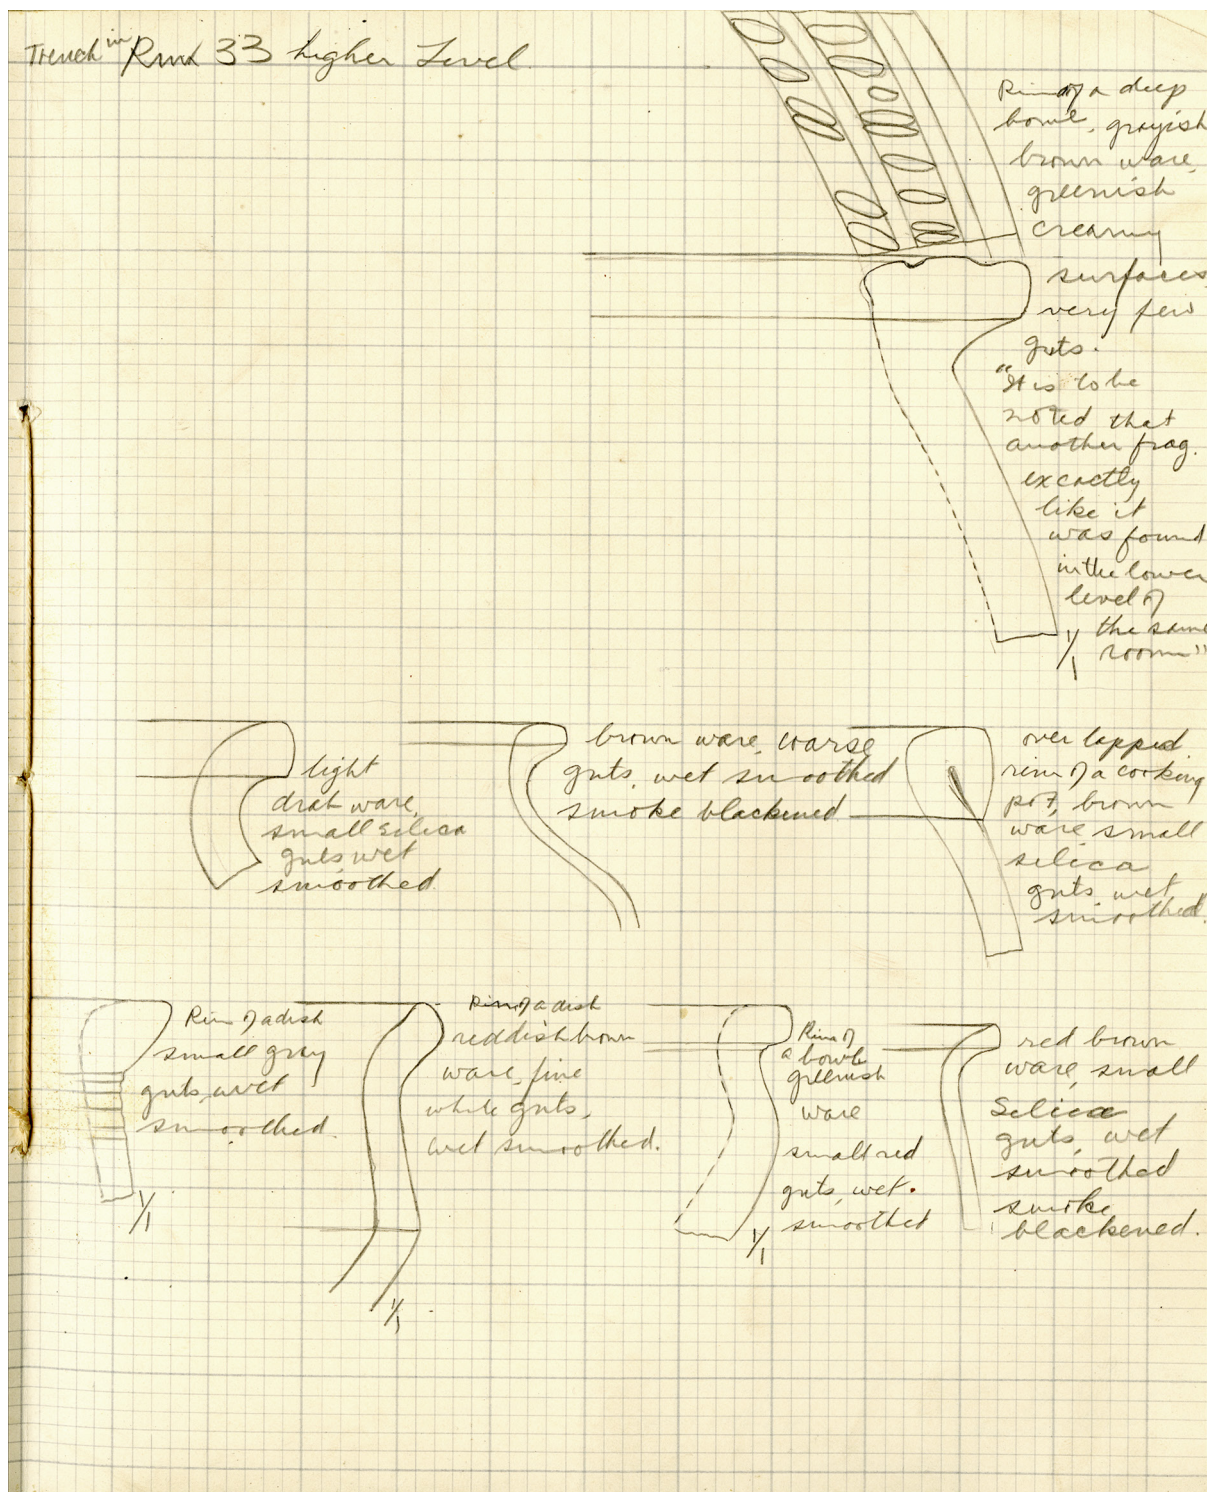 Trench in Rm 33 higher Level
Rim of a deep
bowl, grayish
brown ware,
greenish
creamy
surfaces,
very few
grits.
"It is to be
noted that
another frag.
exactly
like it
was found
in the lower
level of
the same
room"
1/1
light
drab ware,
small silica
grits wet
smoothed.
brown ware, coarse
grits, wet smoothed
smoke blackened
over lapped
rim of a cooking
pot, brown
ware small
silica
grits, wet
smoothed.
Rim of a dish
small gray
grits, wet
smoothed.
1/1
Rim of a dish
reddish brown
ware, fine
white grits,
wet smoothed.
1/1
Rim of
a bowl
greenish
ware
small red
grits, wet.
smoothed
1/1
red brown
ware, small
Silica
grits, wet
smoothed
smoke
blackened.